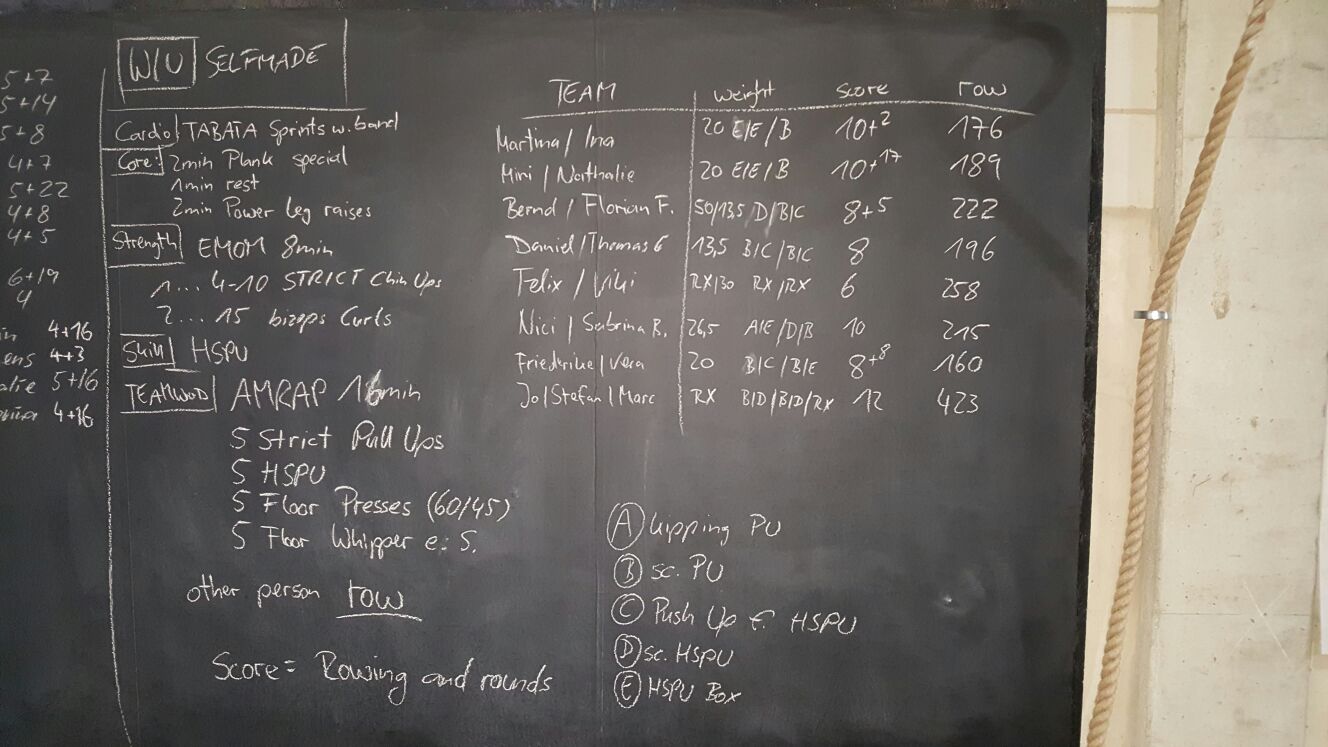 5+7
5+14
5+8
4+7
5+22
4+8
4+5
6+19
4
4+16
ens 4+3
5+16
4+16
W/U SELFMADE
Cardio TABATA Sprints w. band
Core: 2min Plank special
1min rest
2min Power leg raises
Strength EMOM 8min
1... 4-10 STRICT Chin Ups
2... 15 bizeps Curls
Skill HSPU
TEAMWOD AMRAP 16min
5 Strict Pull Ups
5 HSPU
5 Floor Presses (60/45)
5 Floor Whipper e. S.
other person row
Score = Rowing and rounds
TEAM weight score row
Martina / Ina 20 E/E / B 10+2 176
Mini / Nathalie 20 E/E / B 10+17 189
Bernd / Florian F. 50/13,5 D/B/C 8+5 222
Daniel / Thomas G 13,5 B/C / B/C 8 196
Felix / Viki RX/30 RX/RX 6 258
Nici / Sabrina R. 26,5 A/E / D/B 10 215
Friederike / Vera 20 B/C / B/E 8+8 160
Jo / Stefan / Marc RX B/D / B/D / RX 12 423
A Kipping PU
B sc. PU
C Push Up f. HSPU
D sc. HSPU
E HSPU Box